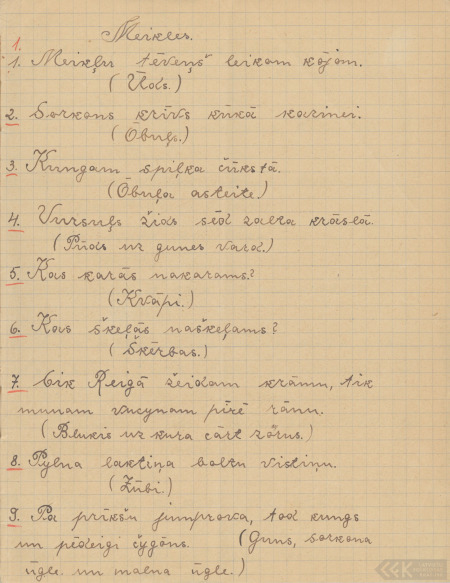 1.
Meikles.
1. Meikļu tēveņš leikom kōjom.
(Ūds.)
2. Sorkons krīvs kūkā karinei.
(Ōbuļs.)
3. Kungam spiļka čūkstā.
(Ōbuļa asteite.)
4. Vursuļs žīds sēd zalta krāslā.
(Pūds uz guņes vard.)
5. Kas karās nakarams?
(Kvāpi.)
6. Kas šķeļās našķeļams?
(Šķērbas.)
7. Cik Reigā žeidam krāmu, tik
munam vucynam pīrē rānu.
(Blukis uz kura cārt zōrus.)
8. Pylna laktiņa boltu vistiņu.
(Zūbi.)
9. Pa prīkšu jumprova, tod kungs
un pēdeigi čygōns. (Guns, sorkona
ūgle un malna ūgle.)